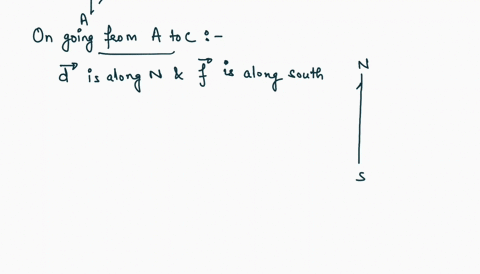 A
On going from A to C :-
d⃗ is along N & f⃗ is along south
N
S